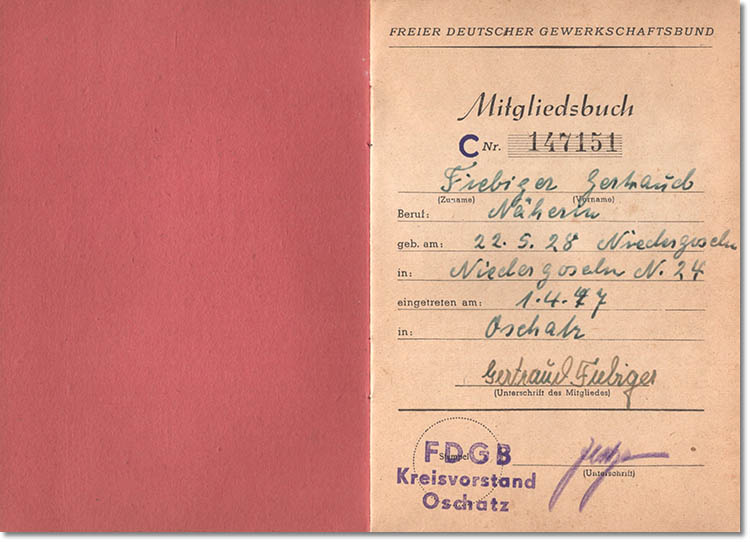 FREIER DEUTSCHER GEWERKSCHAFTSBUND
Mitgliedsbuch
C Nr. 147151
Fiebiger Gertraud
(Zuname) (Vorname)
Beruf: Näherin
geb. am: 22. 5. 28 Niedergoseln
in: Niedergoseln N. 24
eingetreten am: 1. 4. 47
in: Oschatz
Gertraud Fiebiger
(Unterschrift des Mitgliedes)
Stempel
FDGB
Kreisvorstand
Oschatz
(Unterschrift)